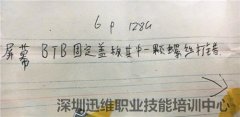 6 P 128G
屏幕BTB固定盖板其中一颗螺丝打错
深圳迅维职业技能培训中心